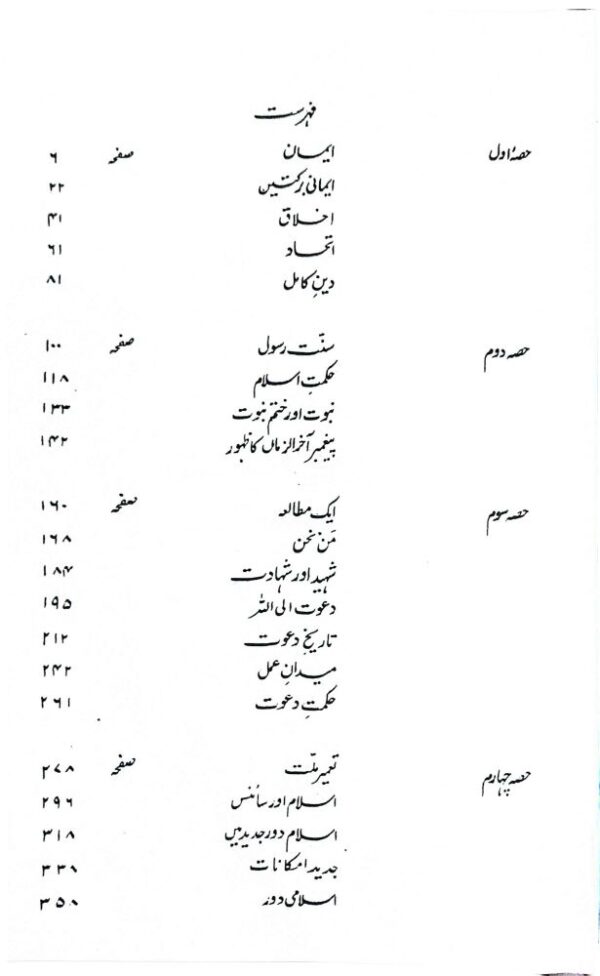 فہرست
حصۂ اول ایمان صفحہ ۶
ایمانی برکتیں ۲۲
اخلاق ۴۱
اتحاد ۶۱
دینِ کامل ۸۱
حصہ دوم سنّت رسول صفحہ ۱۰۰
حکمتِ اسلام ۱۱۸
نبوت اور ختم نبوت ۱۳۳
پیغمبر آخر الزماں کا ظہور ۱۴۲
حصہ سوم ایک مطالعہ صفحہ ۱۶۰
مَن نحن ۱۶۸
شہید اور شہادت ۱۸۴
دعوت الی اللہ ۱۹۵
تاریخِ دعوت ۲۱۲
میدانِ عمل ۲۴۲
حکمتِ دعوت ۲۶۱
حصہ چہارم تعمیر ملّت صفحہ ۲۷۸
اسلام اور سائنس ۲۹۶
اسلام دور جدید میں ۳۱۸
جدید امکانات ۳۳۸
اسلامی دور ۳۵۸